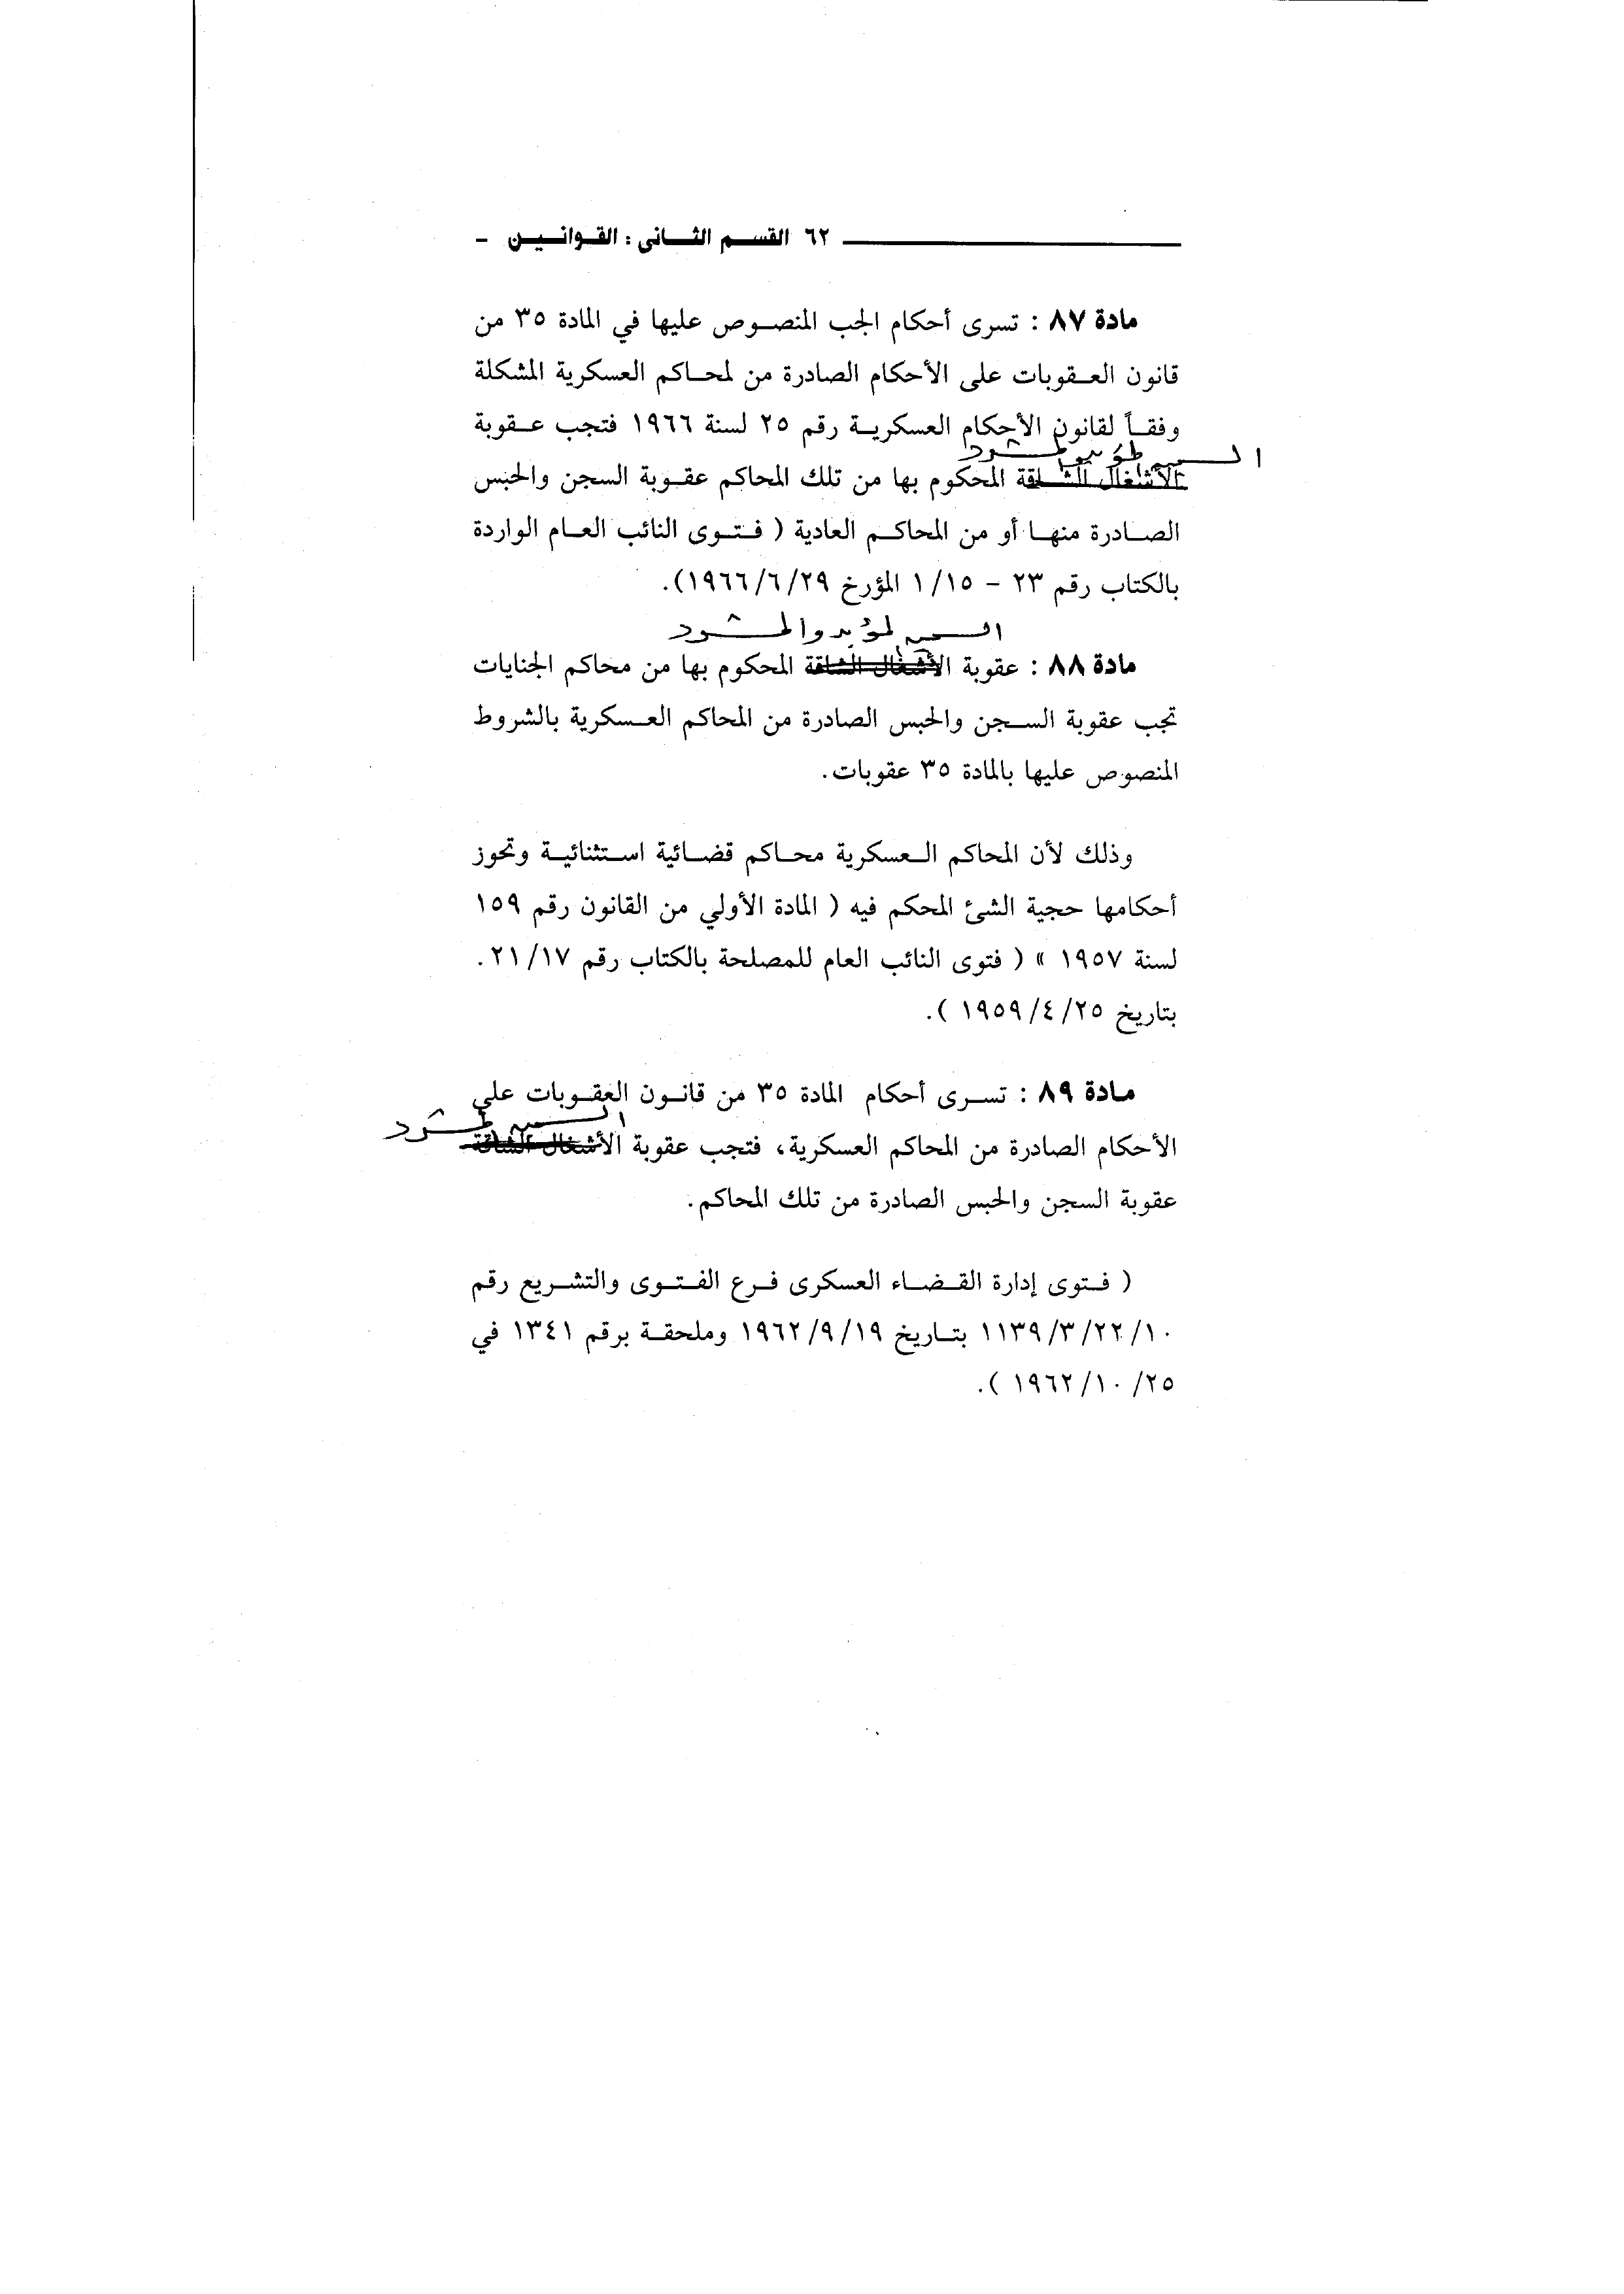 ٦٢ القسم الثانى : القوانين -
مادة ٨٧ : تسرى أحكام الجب المنصوص عليها في المادة ٣٥ من
قانون العقوبات على الأحكام الصادرة من لمحاكم العسكرية المشكلة
وفقاً لقانون الأحكام العسكرية رقم ٢٥ لسنة ١٩٦٦ فتجب عقوبة
السجن المؤبد والمشدد
الأشغال الشاقة المحكوم بها من تلك المحاكم عقوبة السجن والحبس
الصادرة منها أو من المحاكم العادية ( فتوى النائب العام الواردة
بالكتاب رقم ٢٣ - ١/١٥ المؤرخ ١٩٦٦/٦/٢٩).
السجن المؤبد والمشدد
مادة ٨٨ : عقوبة الأشغال الشاقة المحكوم بها من محاكم الجنايات
تجب عقوبة السجن والحبس الصادرة من المحاكم العسكرية بالشروط
المنصوص عليها بالمادة ٣٥ عقوبات.
وذلك لأن المحاكم العسكرية محاكم قضائية استثنائية وتحوز
أحكامها حجية الشئ المحكم فيه ( المادة الأولي من القانون رقم ١٥٩
لسنة ١٩٥٧ » ( فتوى النائب العام للمصلحة بالكتاب رقم ٢١/١٧.
بتاريخ ١٩٥٩/٤/٢٥ ).
مادة ٨٩ : تسرى أحكام المادة ٣٥ من قانون العقوبات علي
السجن المشدد
الأحكام الصادرة من المحاكم العسكرية، فتجب عقوبة الأشغال الشاقة
عقوبة السجن والحبس الصادرة من تلك المحاكم.
( فتوى إدارة القضاء العسكرى فرع الفتوى والتشريع رقم
١١٣٩/٣/٢٢/١٠ بتاريخ ١٩٦٢/٩/١٩ وملحقة برقم ١٣٤١ في
١٩٦٢/١٠/٢٥ ).